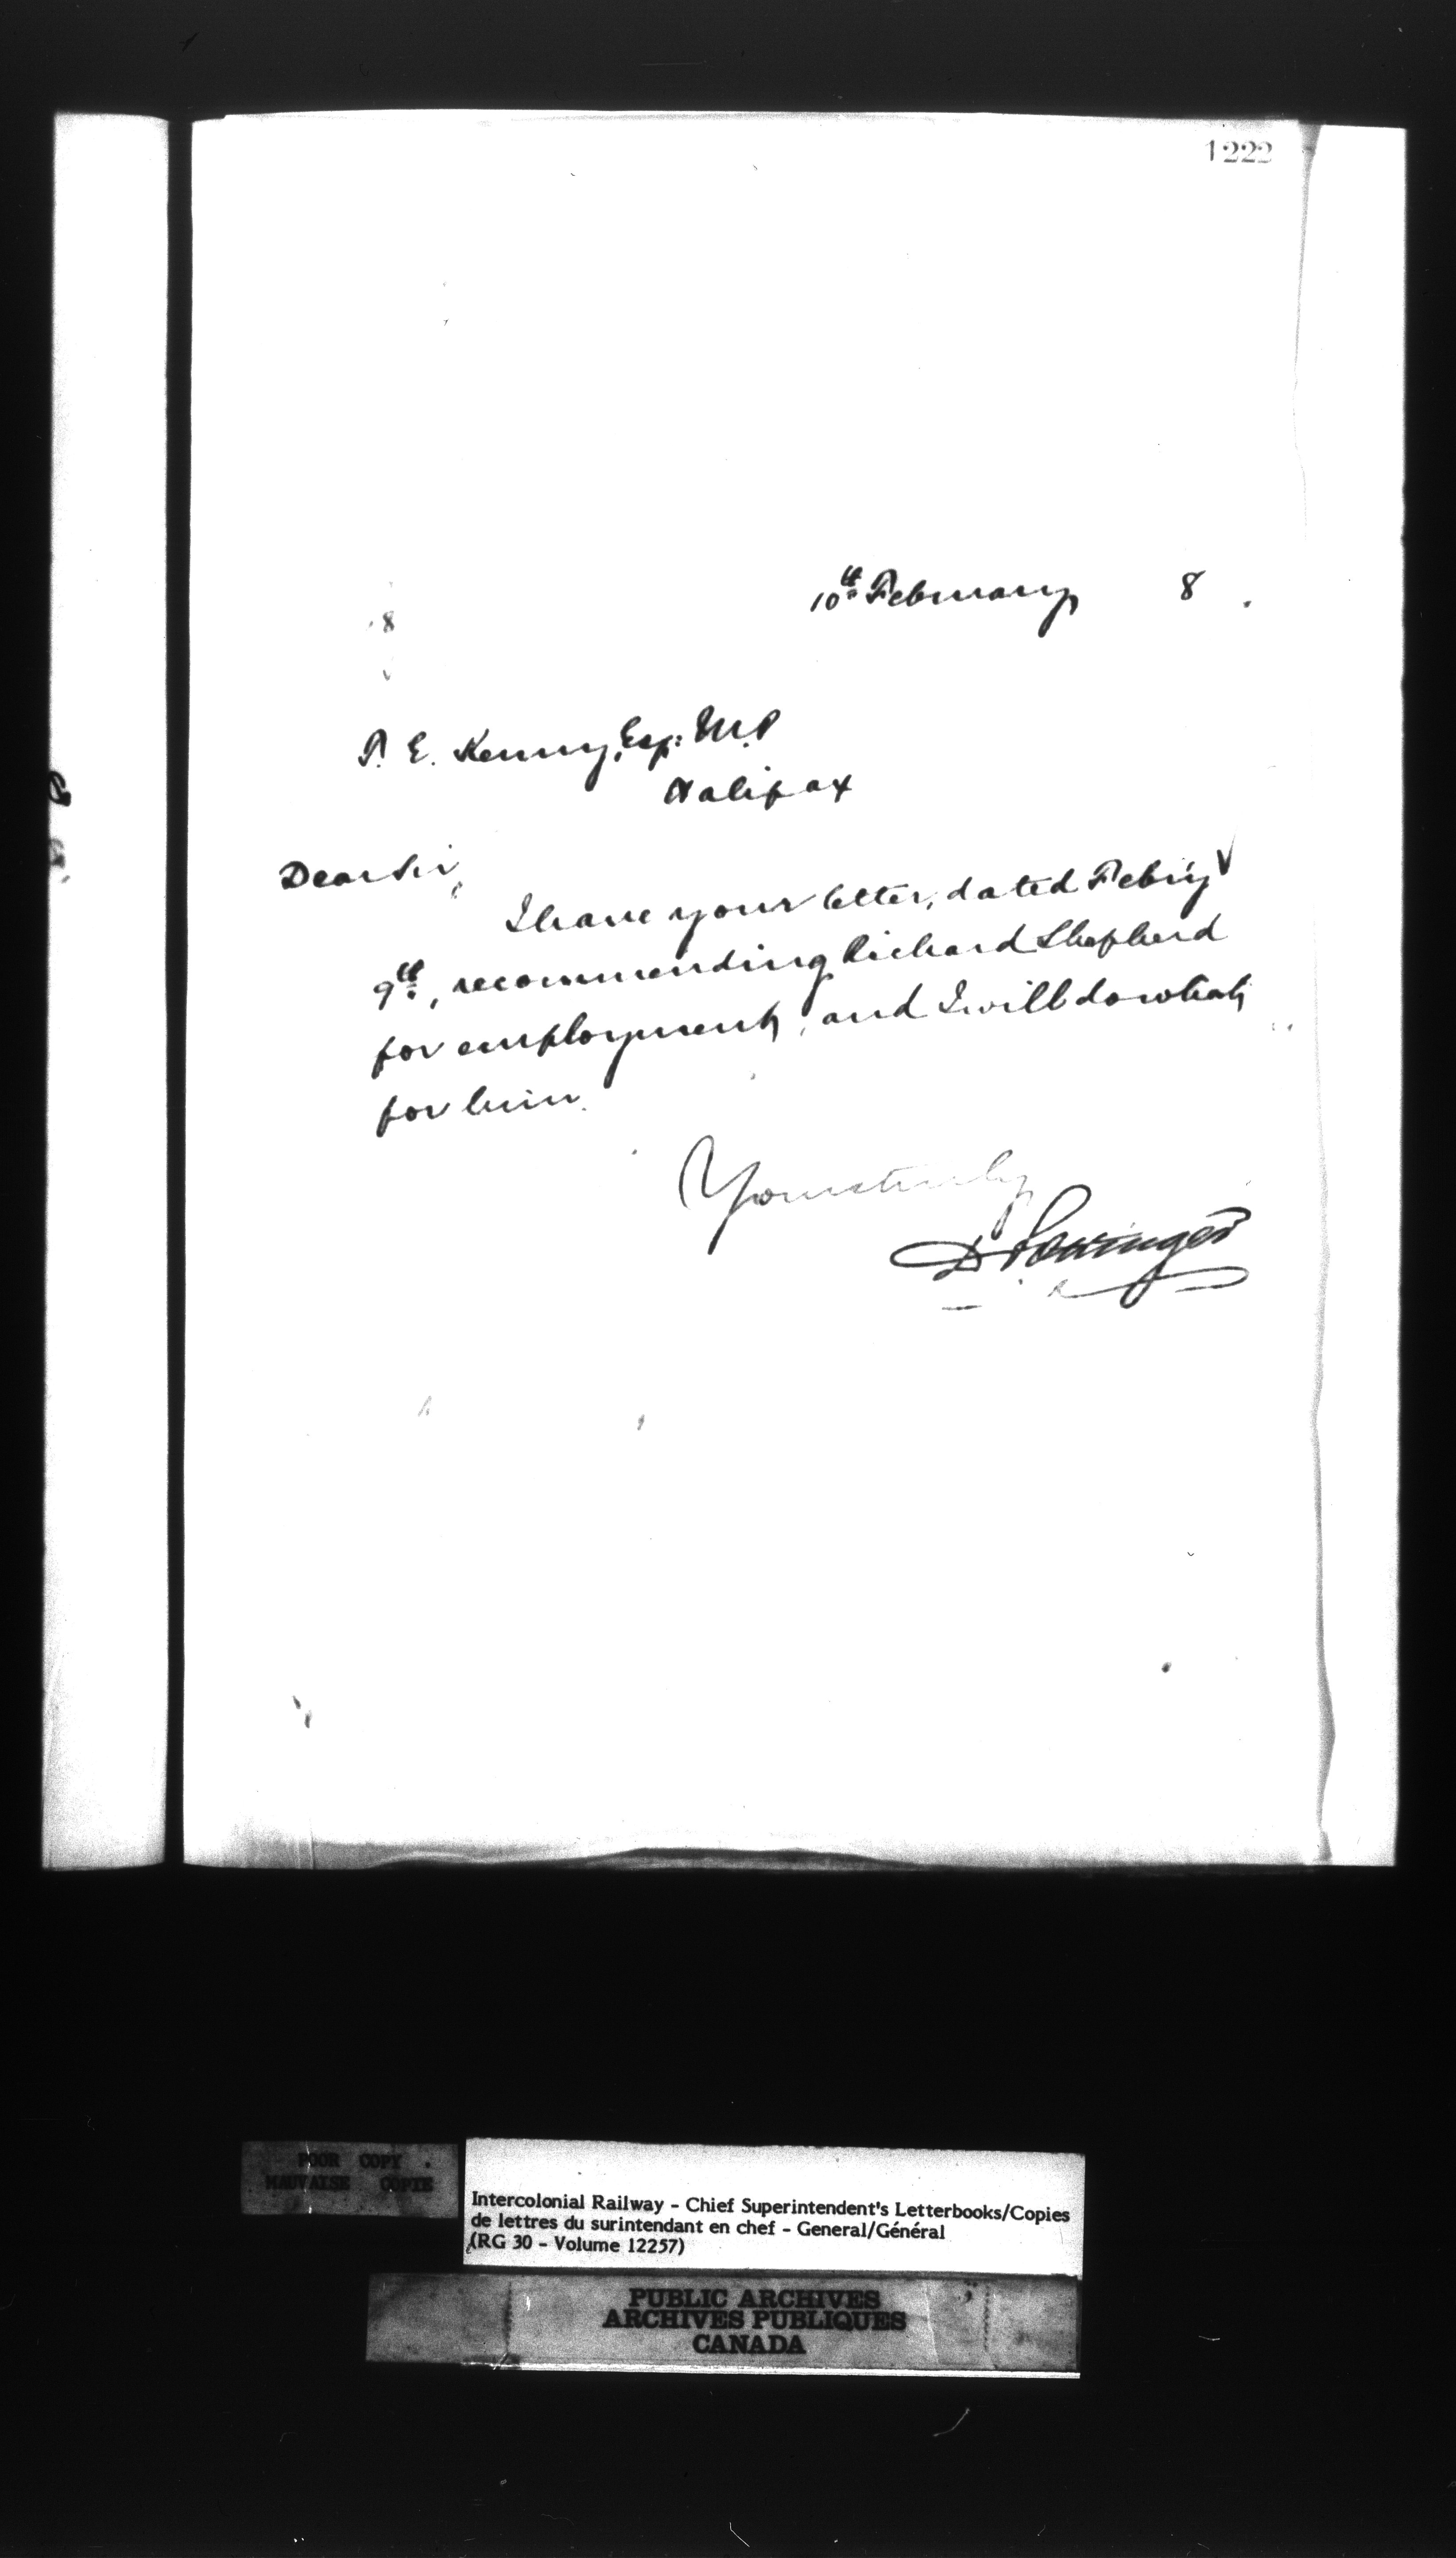 1222
10th February 8
8
T. E. Kenny, Esq: M.P
Halifax
Dear Sir,
I have your letter, dated Feb'ry
9th, recommending Richard Shepherd
for employment, and I will do what
for him.
Yours truly
D Pottinger
POOR COPY
MAUVAISE COPIE
Intercolonial Railway - Chief Superintendent's Letterbooks/Copies
de lettres du surintendant en chef - General/Général
(RG 30 - Volume 12257)
PUBLIC ARCHIVES
ARCHIVES PUBLIQUES
CANADA